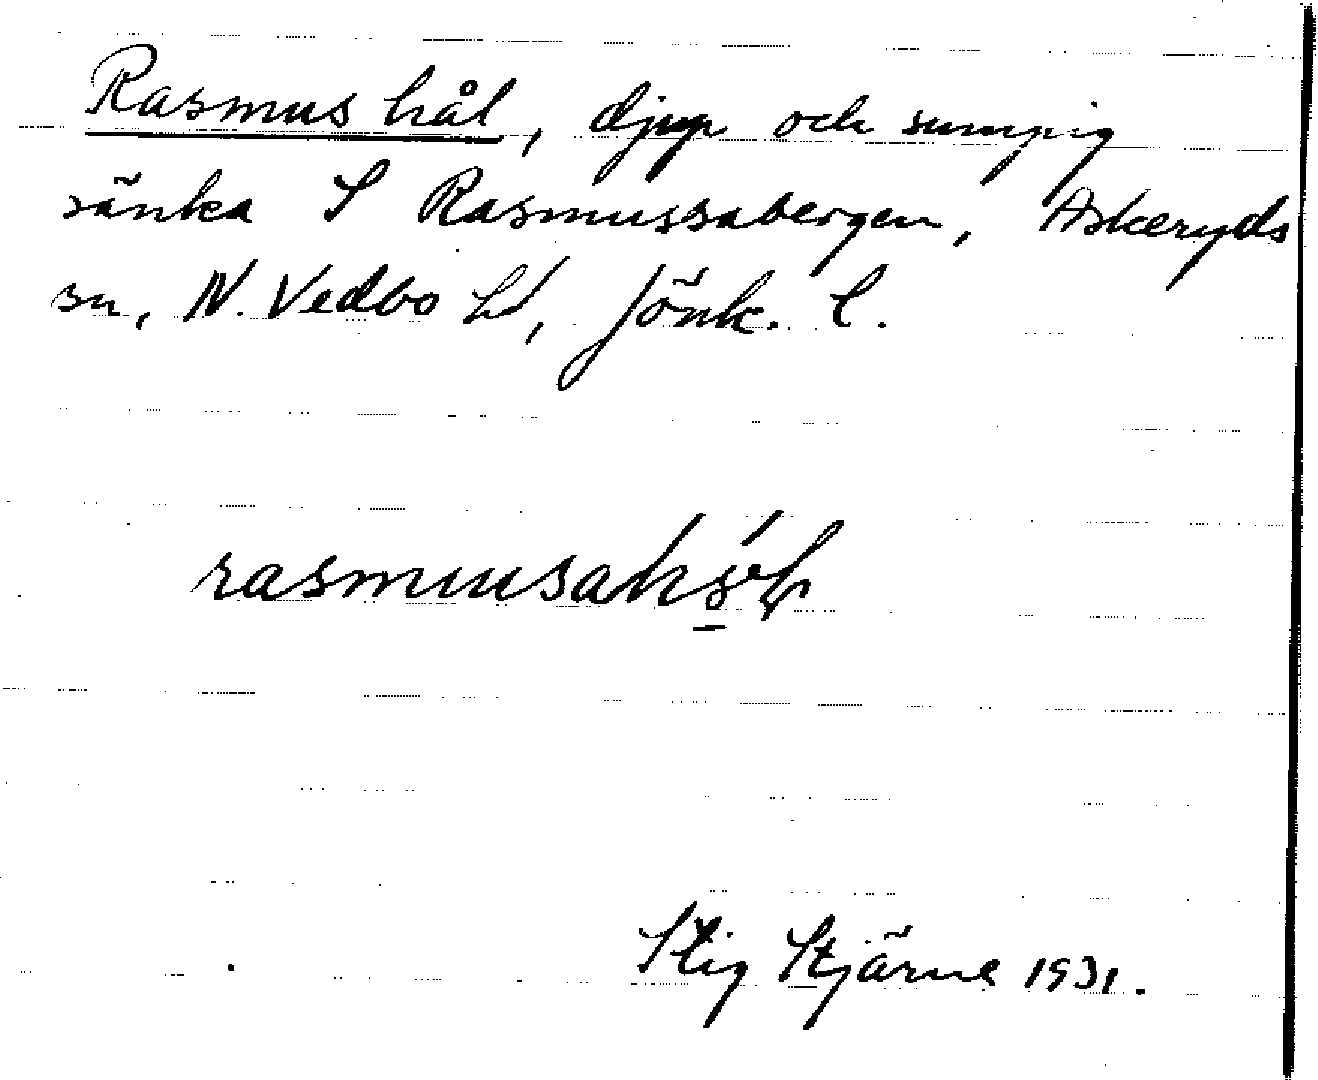 Rasmus hål, djup och sumpig
sänka S Rasmussabergen, Askeryds
sn, N. Vedbo hd, Jönk. l.
Stig Stjärne 1931.